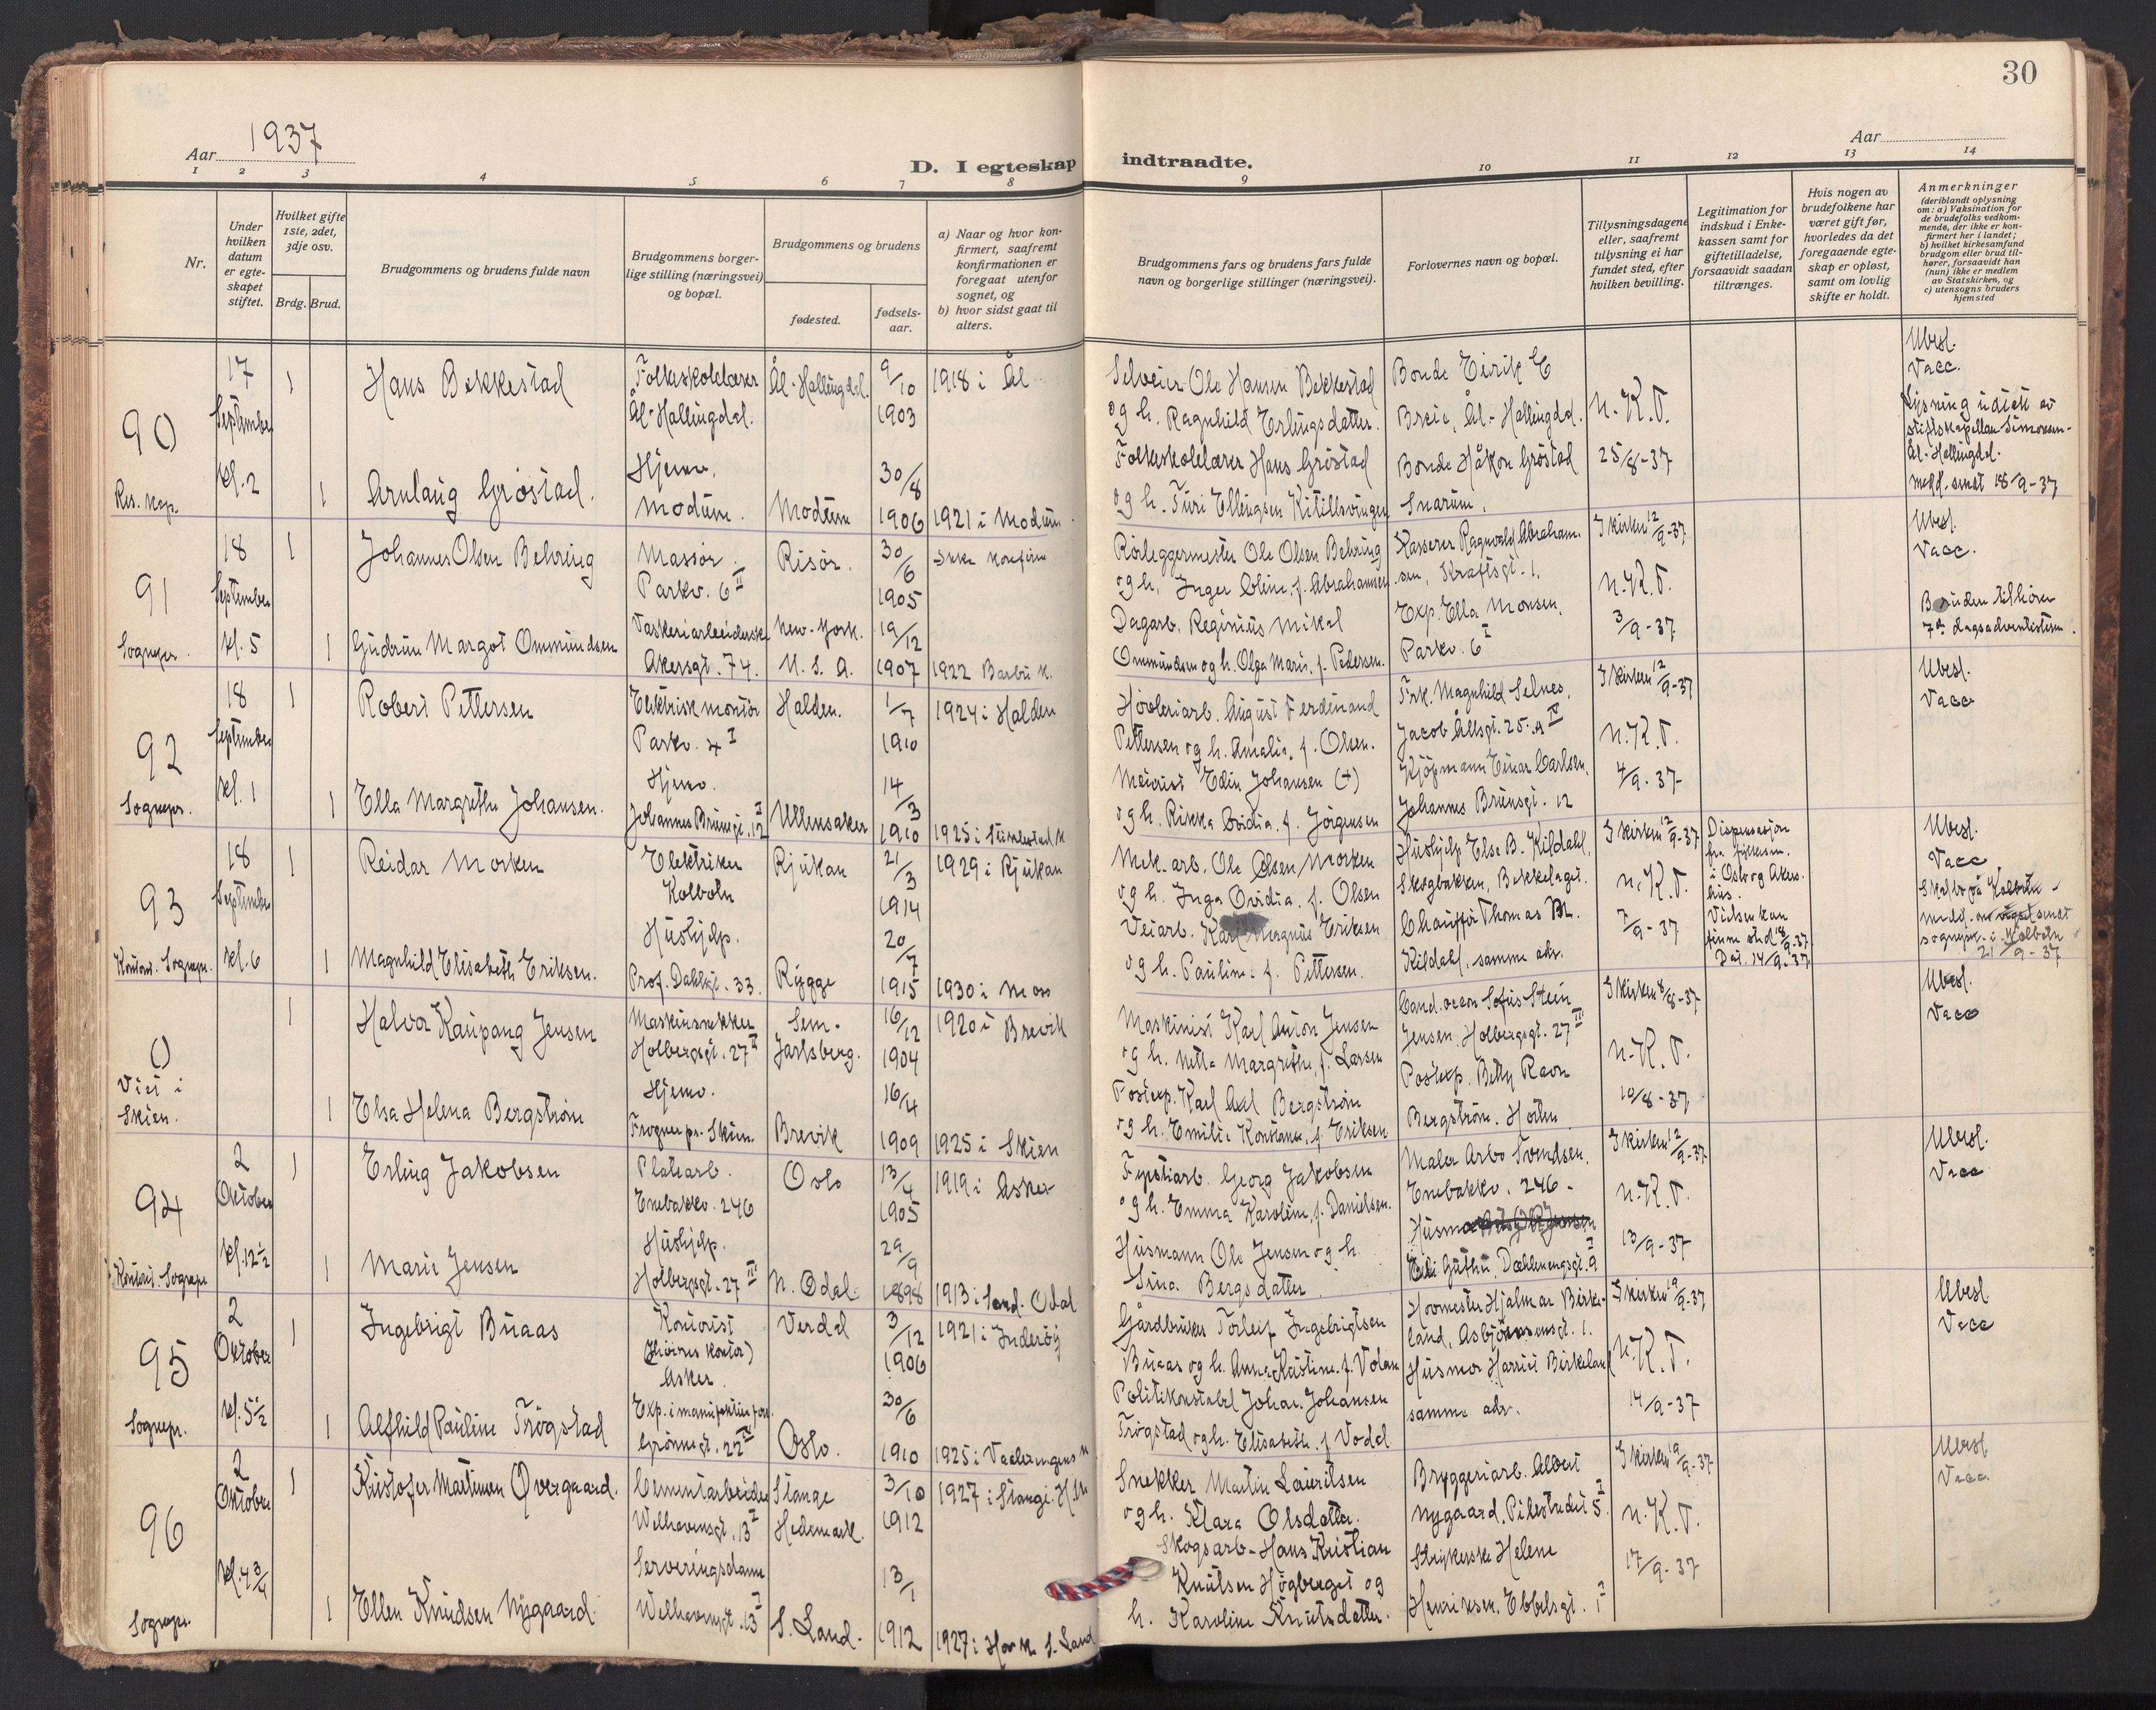 30
Aar 1937
Aar
D. I egteskap indtraadte.
1 2 3 4 5 6 7 8 9 10 11 12 13 14
Nr.
Under hvilken datum er egteskapet stiftet.
Hvilket gifte 1ste, 2det, 3dje osv.
Brdg. Brud.
Brudgommens og brudens fulde navn
Brudgommens borgerlige stilling (næringsvei) og bopæl.
Brudgommens og brudens
fødested.
fødselsaar.
a) Naar og hvor konfirmert, saafremt konfirmationen er foregaat utenfor sognet, og
b) hvor sidst gaat til alters.
Brudgommens fars og brudens fars fulde navn og borgerlige stillinger (næringsvei).
Forlovernes navn og bopæl.
Tillysningsdagene eller, saafremt tillysning ei har fundet sted, efter hvilken bevilling.
Legitimation for indskud i Enkekassen samt for giftetilladelse, forsaavidt saadan tiltrænges.
Hvis nogen av brudefolkene har været gift før, hvorledes da det foregaaende egteskap er opløst, samt om lovlig skifte er holdt.
Anmerkninger
(deriblandt oplysning om: a) Vaksination for de brudefolks vedkommende, der ikke er konfirmert her i landet; b) hvilket kirkesamfund brudgom eller brud tilhører, forsaavidt han (hun) ikke er medlem av Statskirken, og c) utensogns bruders hjemsted
90
Res. kap.
17 September kl. 2
1 Hans Bekkestad
Folkeskolelærer Ål-Hallingdal.
Ål-Hallingdal. 9/10 1903
1918 i Ål
Selveier Ole Hansen Bekkestad
og h. Ragnhild Erlingsdatter.
Bonde Eirik E
Breie, Ål-Hallingdal.
N.K.T.
25/8-37
Ubesl.
Vacc.
Lysning utført av
stiftskapellan Simonsen-
Ål-Hallingdal.
medd. sendt 18/9-37
1 Arnlaug Grøstad.
Hjemv. Modum.
Modum 30/8 1906
1921 i Modum
Folkeskolelærer Hans Grøstad
og h. Turi Ellingsen
Bonde Håkon Grøstad
Snarum.
91
Sognepr.
18 September kl. 5
1 Johannes Olsen Behring
Massør. Parkv. 6 II
Risør. 30/6 1905
Rørleggermester Ole Olsen Behring
og h. Inger Oline, f. Abrahamsen
Kasserer Ragnvald Abrahamsen, Kraftsgt. 1.
I kirken 12/9-37
N.K.T.
3/9-37
Ubesl.
Vacc.
Bruden tilhører
7de dagsadventisterne.
1 Gudrun Margot Ommundsen
Vaskeriarbeiderske Akersgt. 74.
New-York. U.S.A. 19/12 1907
1922 Barbu k.
Dagarb. Reginius Mikal
Ommundsen og h. Olga Marie, f. Pedersen.
Exp. Ella Monsen,
Parkv. 6 I
92
Sognepr.
18 September kl. 1
1 Robert Pettersen
Elektrisk montør Parkv. 4 I
Halden. 1/7 1910
1924 i Halden
Høvleriarb. August Ferdinand
Pettersen og h. Amalie, f. Olsen.
Frk. Magnhild Selnes,
Jacob Ållsgt. 25. IV
I kirken 12/9-37
N.K.T.
4/9-37
Ubesl.
Vacc
1 Ella Margrethe Johansen.
Hjemv. Johannes Brunsgt. 12 I
Ullensaker 14/3 1910
1925 i
Meierist Edin Johansen (+)
og h. Rikka Ovidia. f. Jørgensen
Kjøpmann Einar Carlsen,
Johannes Brunsgt. 12
93
Kontor. Sognepr.
18 September kl. 6
1 Reidar Morken
Elektriker Kolbotn
Rjukan 21/3 1914
1929 i Rjukan
Mek. arb. Ole Olsen Morken
og h. Inga Ovidia. f. Olsen
Hushjelp Else B. Kildahl,
Skogbakken, Bekkelaget.
I kirken 12/9-37
N.K.T.
7/9-37
Dispensasjon
fra fylkesm.
i Oslo og Akershus.
Vielsen kan
finne sted 18/9-37
Dat. 14/9-37
Ubesl.
Vacc.
Skal bo på Kolbotn -
medd. om vigsel sendt
sognepr. i Kolbotn
21/9-37
1 Magnhild Elisabeth Eriksen.
Hushjelp. Prof. Dahlsgt. 33.
Rygge 20/7 1915
1930 i Moss
Veiarb. Karl Magnus Eriksen
og h. Pauline f. Pettersen.
Chauffør Thomas Br.
Kildahl, samme adr.
0
Viet i
Skien.
1 Halvor Kaupang Jensen
Maskinsnekker Holbergsgt. 27 II
Sem. Jarlsberg. 16/12 1904
1920 i Brevik
Maskinist Karl Anton Jensen
og h. Netta Margrethe, f. Larsen
Cand. oecon Sofus Stein
Jensen. Holbergsgt. 27 III
I kirken 8/8-37
N.K.T.
10/8-37
Ubesl.
Vacc
1 Elsa Helena Bergstrøm
Hjemv. Frogner pr. Skien
Brevik 16/4 1909
1925 i Skien
Postexp. Karl Axel Bergstrøm
og h. Emilie Konstanse, f. Eriksen
Postexp. Betty Ravn
Bergstrøm. Horten
94
Kontor. Sognepr.
2 Oktober kl. 12½
1 Erling Jakobsen
Platearb. Enebakkv. 246
Oslo 13/4 1905
1919 i Asker
Georg Jakobsen
og h. Emma Karoline, f. Danielsen.
Maler Arbo Svendsen,
Enebakkv. 246.
I kirken 12/9-37
N.K.T.
13/9-37
Ubesl.
Vacc
1 Marie Jensen
Hushjelp. Holbergsgt. 27 III
N. Odal 29/9 1898
1913 i Sand. Odal
Husmann Ole Jensen og h.
Sina Bergsdatter.
Guthu, Dælenengsgt. 9 I
95
Sognepr.
2 Oktober kl. 5½
1 Ingebrigt Buaas
Kontorist Asker
Verdal 3/12 1906
1921 i Inderøy
Gårdbruker Torleif Ingebrigtsen
Buaas og h. Anna Kristine. f. Volan
Hovmester Hjalmar Birkeland, Asbjørnsensgt. 1.
I kirken 19/9-37
N.K.T.
14/9-37
Ubesl
Vacc
1 Alfhild Pauline Trøgstad
Exp. i manufakturforr. Grønnegt. 22 IV
Oslo. 30/6 1910
1925 i Vaalerengens k
Politikonstabel Johan Johansen
Trøgstad og h. Elisabeth. f. Vodal
Husmor Harriet Birkeland
samme adr.
96
Sognepr.
2 Oktober kl. 4¾
1 Kristofer Martinsen Øvergaard.
Cementarbeider Welhavensgt. 13 I
Stange Hedemark. 3/10 1912
1927 i Stange. H.
Snekker Martin Lauritsen
og h. Klara Olsdatter.
Bryggeriarb. Albert
Nygaard. Pilestredet 5 I
I kirken 19/9-37
N.K.T.
17/9-37
Ubesl
Vacc.
1 Ellen Knudsen Nygaard.
Serveringsdame Welhavensgt. 13 I
S. Land. 13/1 1912
1927 i Hov k S. Land
Skogsarb. Hans Kristian
Knutsen Høgberget og
h. Karoline Knutsdatter.
Strykerske Helene
Henriksen. Ebbelsgt. 1 I